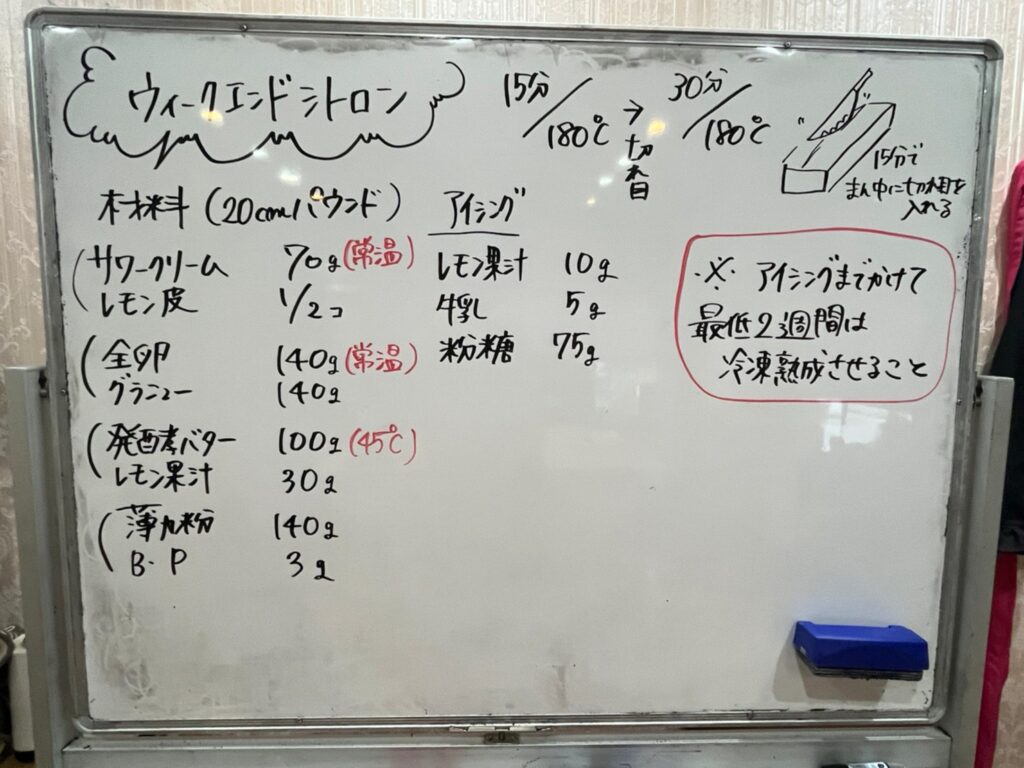 ウィークエンドシトロン
15分/180℃ → 切れ目 30分/180℃
15分で
まん中に切れ目を
入れる
材料(20cmパウンド)
サワークリーム 70g(常温)
レモン皮 1/2コ
全卵 140g(常温)
グラニュー 140g
発酵バター 100g(45℃)
レモン果汁 30g
薄力粉 140g
B・P 3g
アイシング
レモン果汁 10g
牛乳 5g
粉糖 75g
※ アイシングまでかけて
最低2週間は
冷凍熟成させること